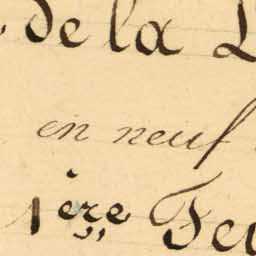 de la
en neuf
1ère